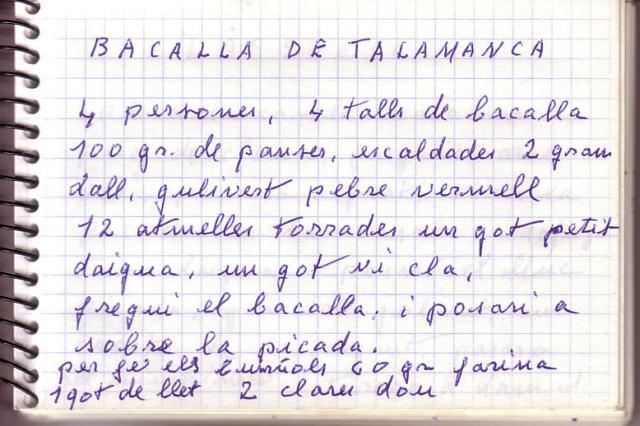 BACALLA DE TALAMANCA
4 persones, 4 talls de bacalla
100 gr. de panses, escaldades 2 grans
dall, gulivert pebre vermell
12 atmelles torrades un got petit
daigua, un got vi cla,
fregui el bacalla, i posari a
sobre la picada.
per fe els buñols 60 gr farina
1 got de llet 2 clares dou